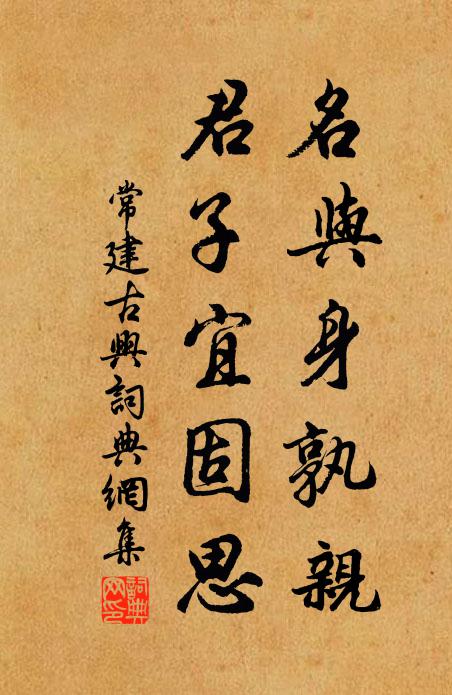 名與身孰親
君子宜固思
常建古興詞典網集
詞典
網印